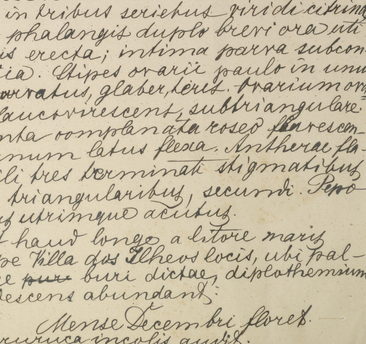 in tribus seriebus viridi citrina
phalangis duplo brevi ora uti
is erecta; intima parva subcon
cia. Stipes ovarii paulo in unu
arvatus, glaber, teris. Ovarium ov
laucovirescent, subtriangulare
nta complanata roseo flavescen
unum latus flexa. Antherae fla
ili tres terminati stigmatibus
triangularibus, secundi. Pepo
us utrimque acutus.
t haud longe a litore maris
pe Villa dos Ilheos locis, ubi pal-
e buri dictae, diplothemium
descens abundant.
Mense Decembri floret.
ruruca incolis audit.